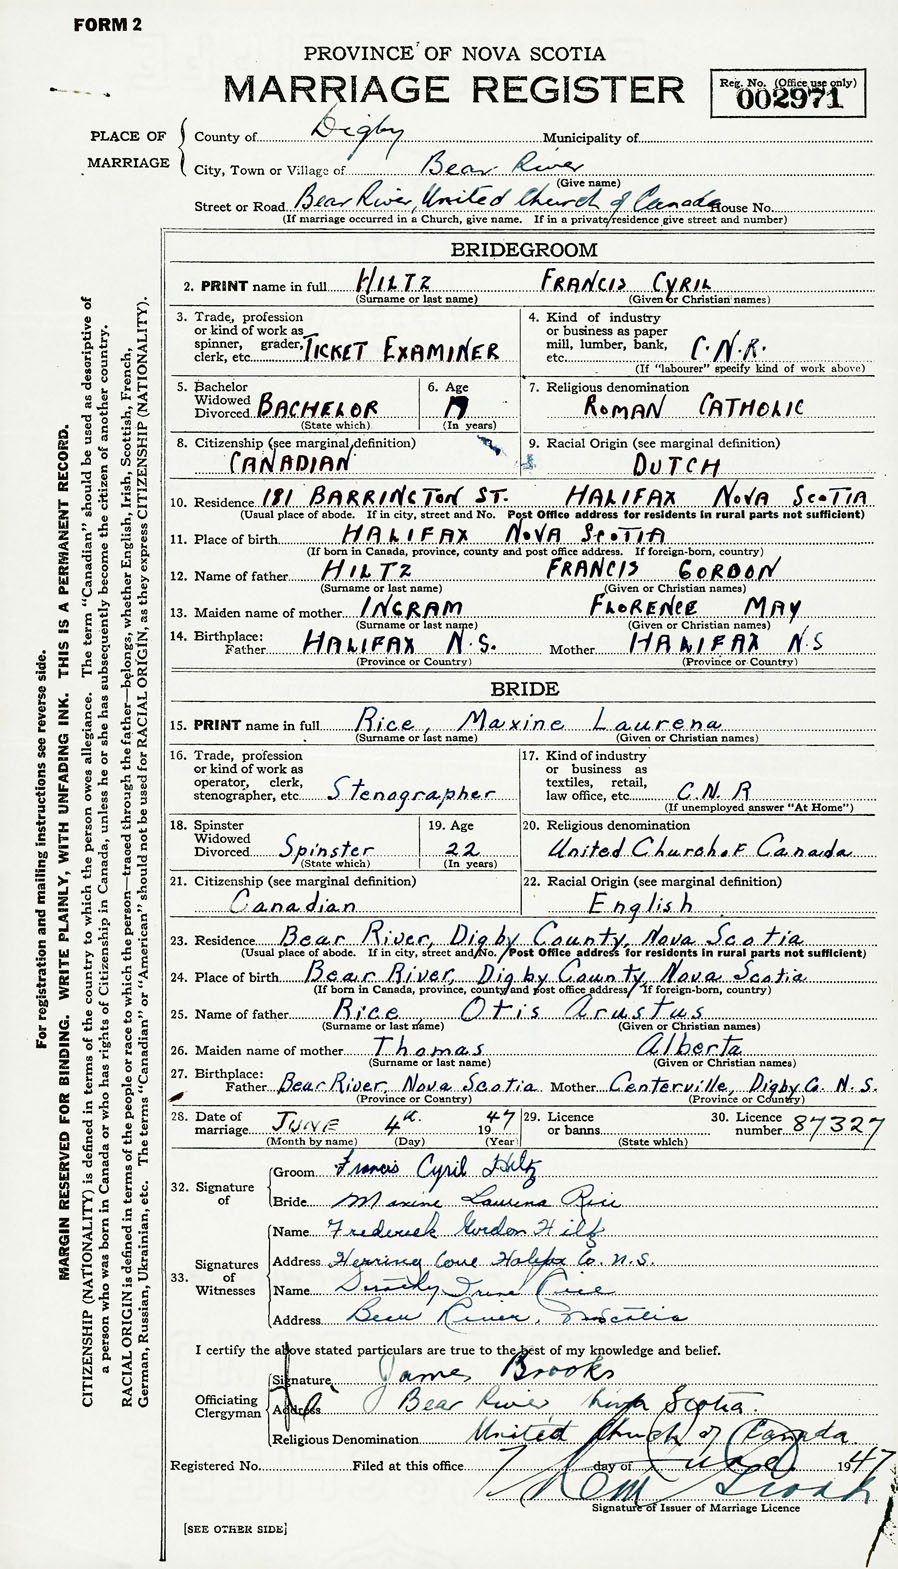 FORM 2
PROVINCE OF NOVA SCOTIA
MARRIAGE REGISTER
Reg. No. (Office use only)
002971
PLACE OF MARRIAGE
County of Digby Municipality of
City, Town or Village of Bear River
(Give name)
Street or Road Bear River, United Church of Canada House No.
(If marriage occurred in a Church, give name. If in a private residence give street and number)
BRIDEGROOM
2. PRINT name in full HILTZ FRANCIS CYRIL
(Surname or last name) (Given or Christian names)
3. Trade, profession or kind of work as spinner, grader, clerk, etc. TICKET EXAMINER
4. Kind of industry or business as paper mill, lumber, bank, etc. C.N.R.
(If "labourer" specify kind of work above)
5. Bachelor Widowed Divorced BACHELOR
(State which)
6. Age
(In years)
7. Religious denomination
ROMAN CATHOLIC
8. Citizenship (see marginal definition)
CANADIAN
9. Racial Origin (see marginal definition)
DUTCH
10. Residence 181 BARRINGTON ST. HALIFAX NOVA SCOTIA
(Usual place of abode. If in city, street and No. Post Office address for residents in rural parts not sufficient)
11. Place of birth HALIFAX NOVA SCOTIA
(If born in Canada, province, county and post office address. If foreign-born, country)
12. Name of father HILTZ FRANCIS GORDON
(Surname or last name) (Given or Christian names)
13. Maiden name of mother INGRAM FLORENCE MAY
(Surname or last name) (Given or Christian names)
14. Birthplace:
Father HALIFAX N.S. Mother HALIFAX N.S
(Province or Country) (Province or Country)
BRIDE
15. PRINT name in full Rice, Maxine Laurena
(Surname or last name) (Given or Christian names)
16. Trade, profession or kind of work as operator, clerk, stenographer, etc. Stenographer
17. Kind of industry or business as textiles, retail, law office, etc. C.N.R
(If unemployed answer "At Home")
18. Spinster Widowed Divorced Spinster
(State which)
19. Age
22
(In years)
20. Religious denomination
United Church of Canada
21. Citizenship (see marginal definition)
Canadian
22. Racial Origin (see marginal definition)
English
23. Residence Bear River, Digby County, Nova Scotia
(Usual place of abode. If in city, street and No. Post Office address for residents in rural parts not sufficient)
24. Place of birth Bear River, Digby County, Nova Scotia
(If born in Canada, province, county and post office address. If foreign-born, country)
25. Name of father Rice, Otis Arustus
(Surname or last name) (Given or Christian names)
26. Maiden name of mother Thomas Alberta
(Surname or last name) (Given or Christian names)
27. Birthplace:
Father Bear River, Nova Scotia Mother Centerville, Digby Co. N.S.
(Province or Country) (Province or Country)
28. Date of marriage JUNE 4th 1947
(Month by name) (Day) (Year)
29. Licence or banns
(State which)
30. Licence number 87327
32. Signature of
Groom Francis Cyril Hiltz
Bride Maxine Laurena Rice
33. Signatures of Witnesses
Name Frederick Gordon Hiltz
Address Herring Cove Halifax Co. N.S.
Name Dorothy Irene Rice
Address Bear River, N. Scotia
I certify the above stated particulars are true to the best of my knowledge and belief.
Officiating Clergyman
Signature James Brooks
Address Bear River Nova Scotia
Religious Denomination United Church of Canada
Registered No. Filed at this office 7 day of June 1947
Signature of Issuer of Marriage Licence
[SEE OTHER SIDE]
For registration and mailing instructions see reverse side.
MARGIN RESERVED FOR BINDING. WRITE PLAINLY, WITH UNFADING INK. THIS IS A PERMANENT RECORD.
CITIZENSHIP (NATIONALITY) is defined in terms of the country to which the person owes allegiance. The term "Canadian" should be used as descriptive of
a person who was born in Canada or who has rights of Citizenship in Canada, unless he or she has subsequently become the citizen of another country.
RACIAL ORIGIN is defined in terms of the people or race to which the person—traced through the father—belongs, whether English, Irish, Scottish, French,
German, Russian, Ukrainian, etc. The terms "Canadian" or "American" should not be used for RACIAL ORIGIN, as they express CITIZENSHIP (NATIONALITY).